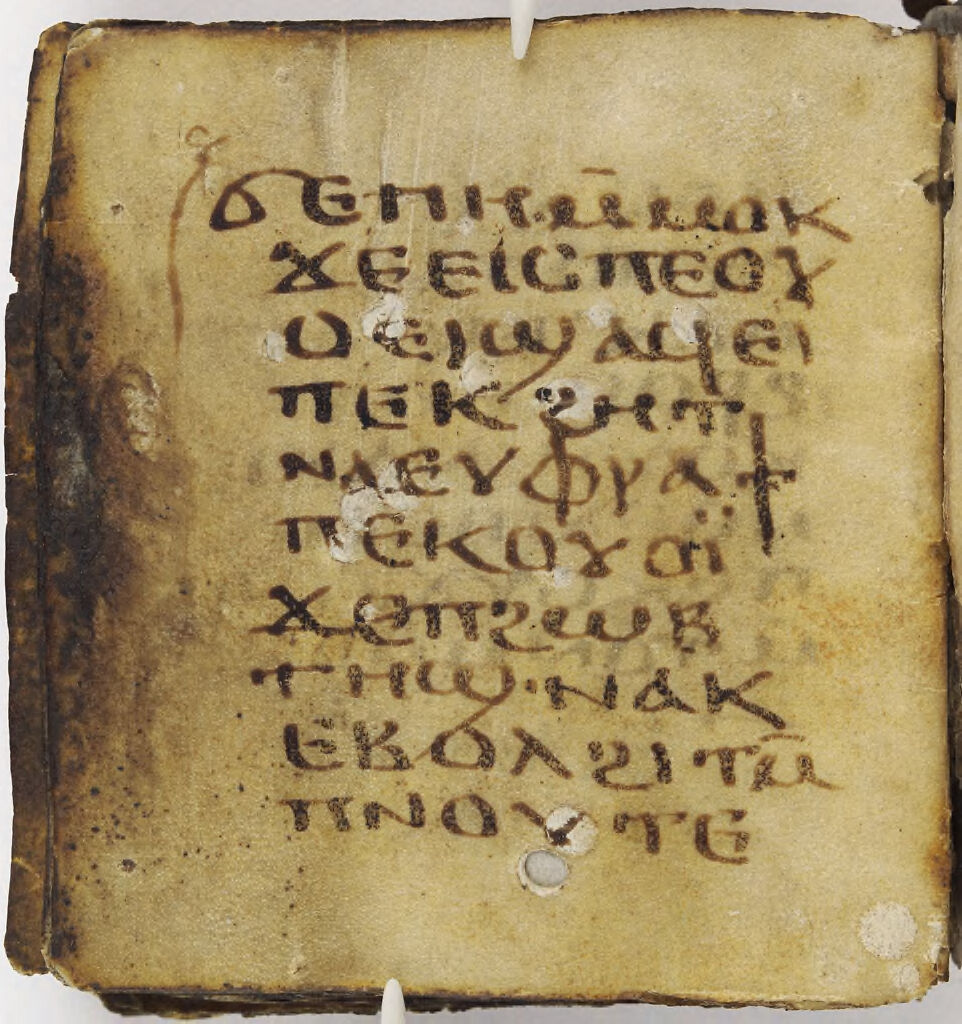 ϭⲉⲡⲏ·ⲙ̄ⲙⲟⲕ
ϫⲉⲉⲓⲥⲡⲉⲟⲩ
ⲟⲉⲓϣⲁϥⲉⲓ
ⲡⲉⲕϩⲏⲧ
ⲛⲁⲉⲩⲫⲣⲁϯ
ⲡⲉⲕⲟⲩⲟⲓ̈
ϫⲉⲡϩⲱⲃ
ⲧⲏϣ·ⲛⲁⲕ
ⲉⲃⲟⲗϩⲓⲧⲙ̄
ⲡⲛⲟⲩⲧⲉ